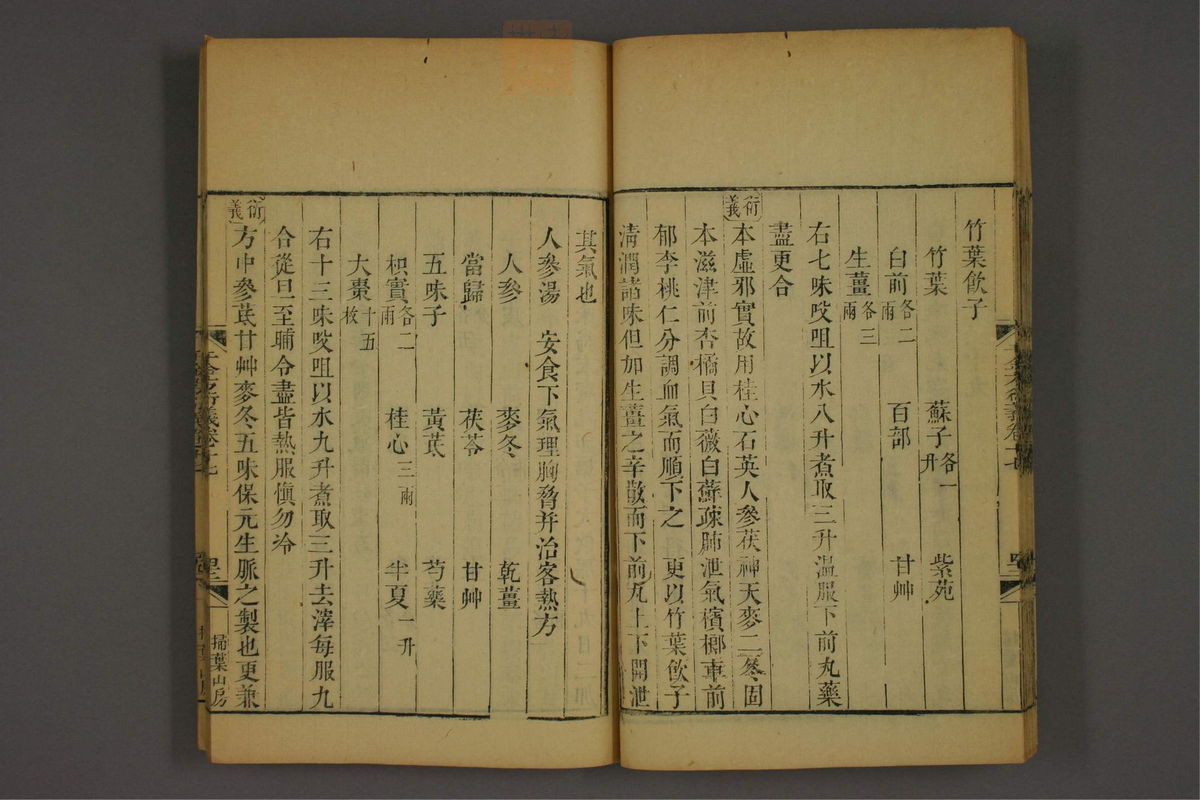 竹葉飲子
竹葉 蘇子各一升 紫苑
白前各二兩 百部 甘艸
生薑各三兩
右七味㕮咀以水八升煮取三升温服下前丸藥
盡更合
衍義
本虛邪實故用桂心石英人參茯神天麥二冬固
本滋津前杏橘貝白薇白蘇疎肺泄氣檳榔車前
郁李桃仁分調血氣而順下之 更以竹葉飲子
清潤諸味但加生薑之辛散而下前丸上下開泄
其氣也
人參湯 安食下氣理胸脅并治客熱方
人參 麥冬 乾薑
當歸 茯苓 甘艸
五味子 黃芪 芍藥
枳實各二兩 桂心三兩 半夏一升
大棗十五枚
右十三味㕮咀以水九升煮取三升去滓每服九
合從旦至晡令盡皆熱服愼勿冷
衍義
方中參芪甘艸麥冬五味保元生脈之製也更兼
千金方衍義卷十七
掃葉山房